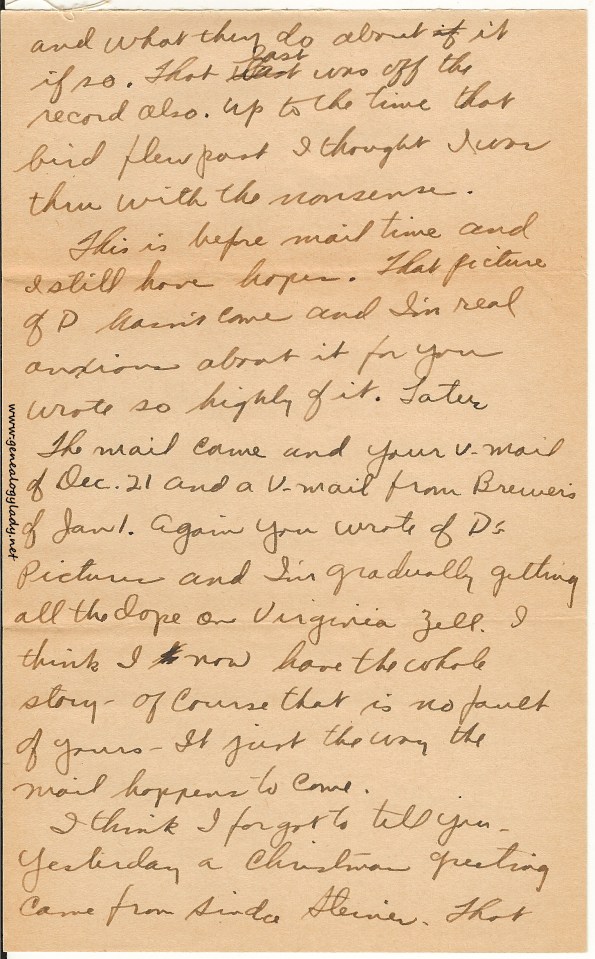 and what they do about if it
if so. That last was off the
record also. Up to the time that
bird flew past I thought I was
thru with the nonsense.
This is before mail time and
I still have hopes. That picture
of D hasn't come and I'm real
anxious about it for you
wrote so highly of it. Later
The mail came and your V-mail
of Dec. 21 and a V-mail from Brewers
of Jan 1. Again you wrote of D's
Picture and I'm gradually getting
all the dope on Virginia Zell. I
think I now have the whole
story - of course that is no fault
of yours - It just the way the
mail happens to come.
I think I forgot to tell you -
Yesterday a Christmas greeting
came from Steiner. That
www.genealogylady.net